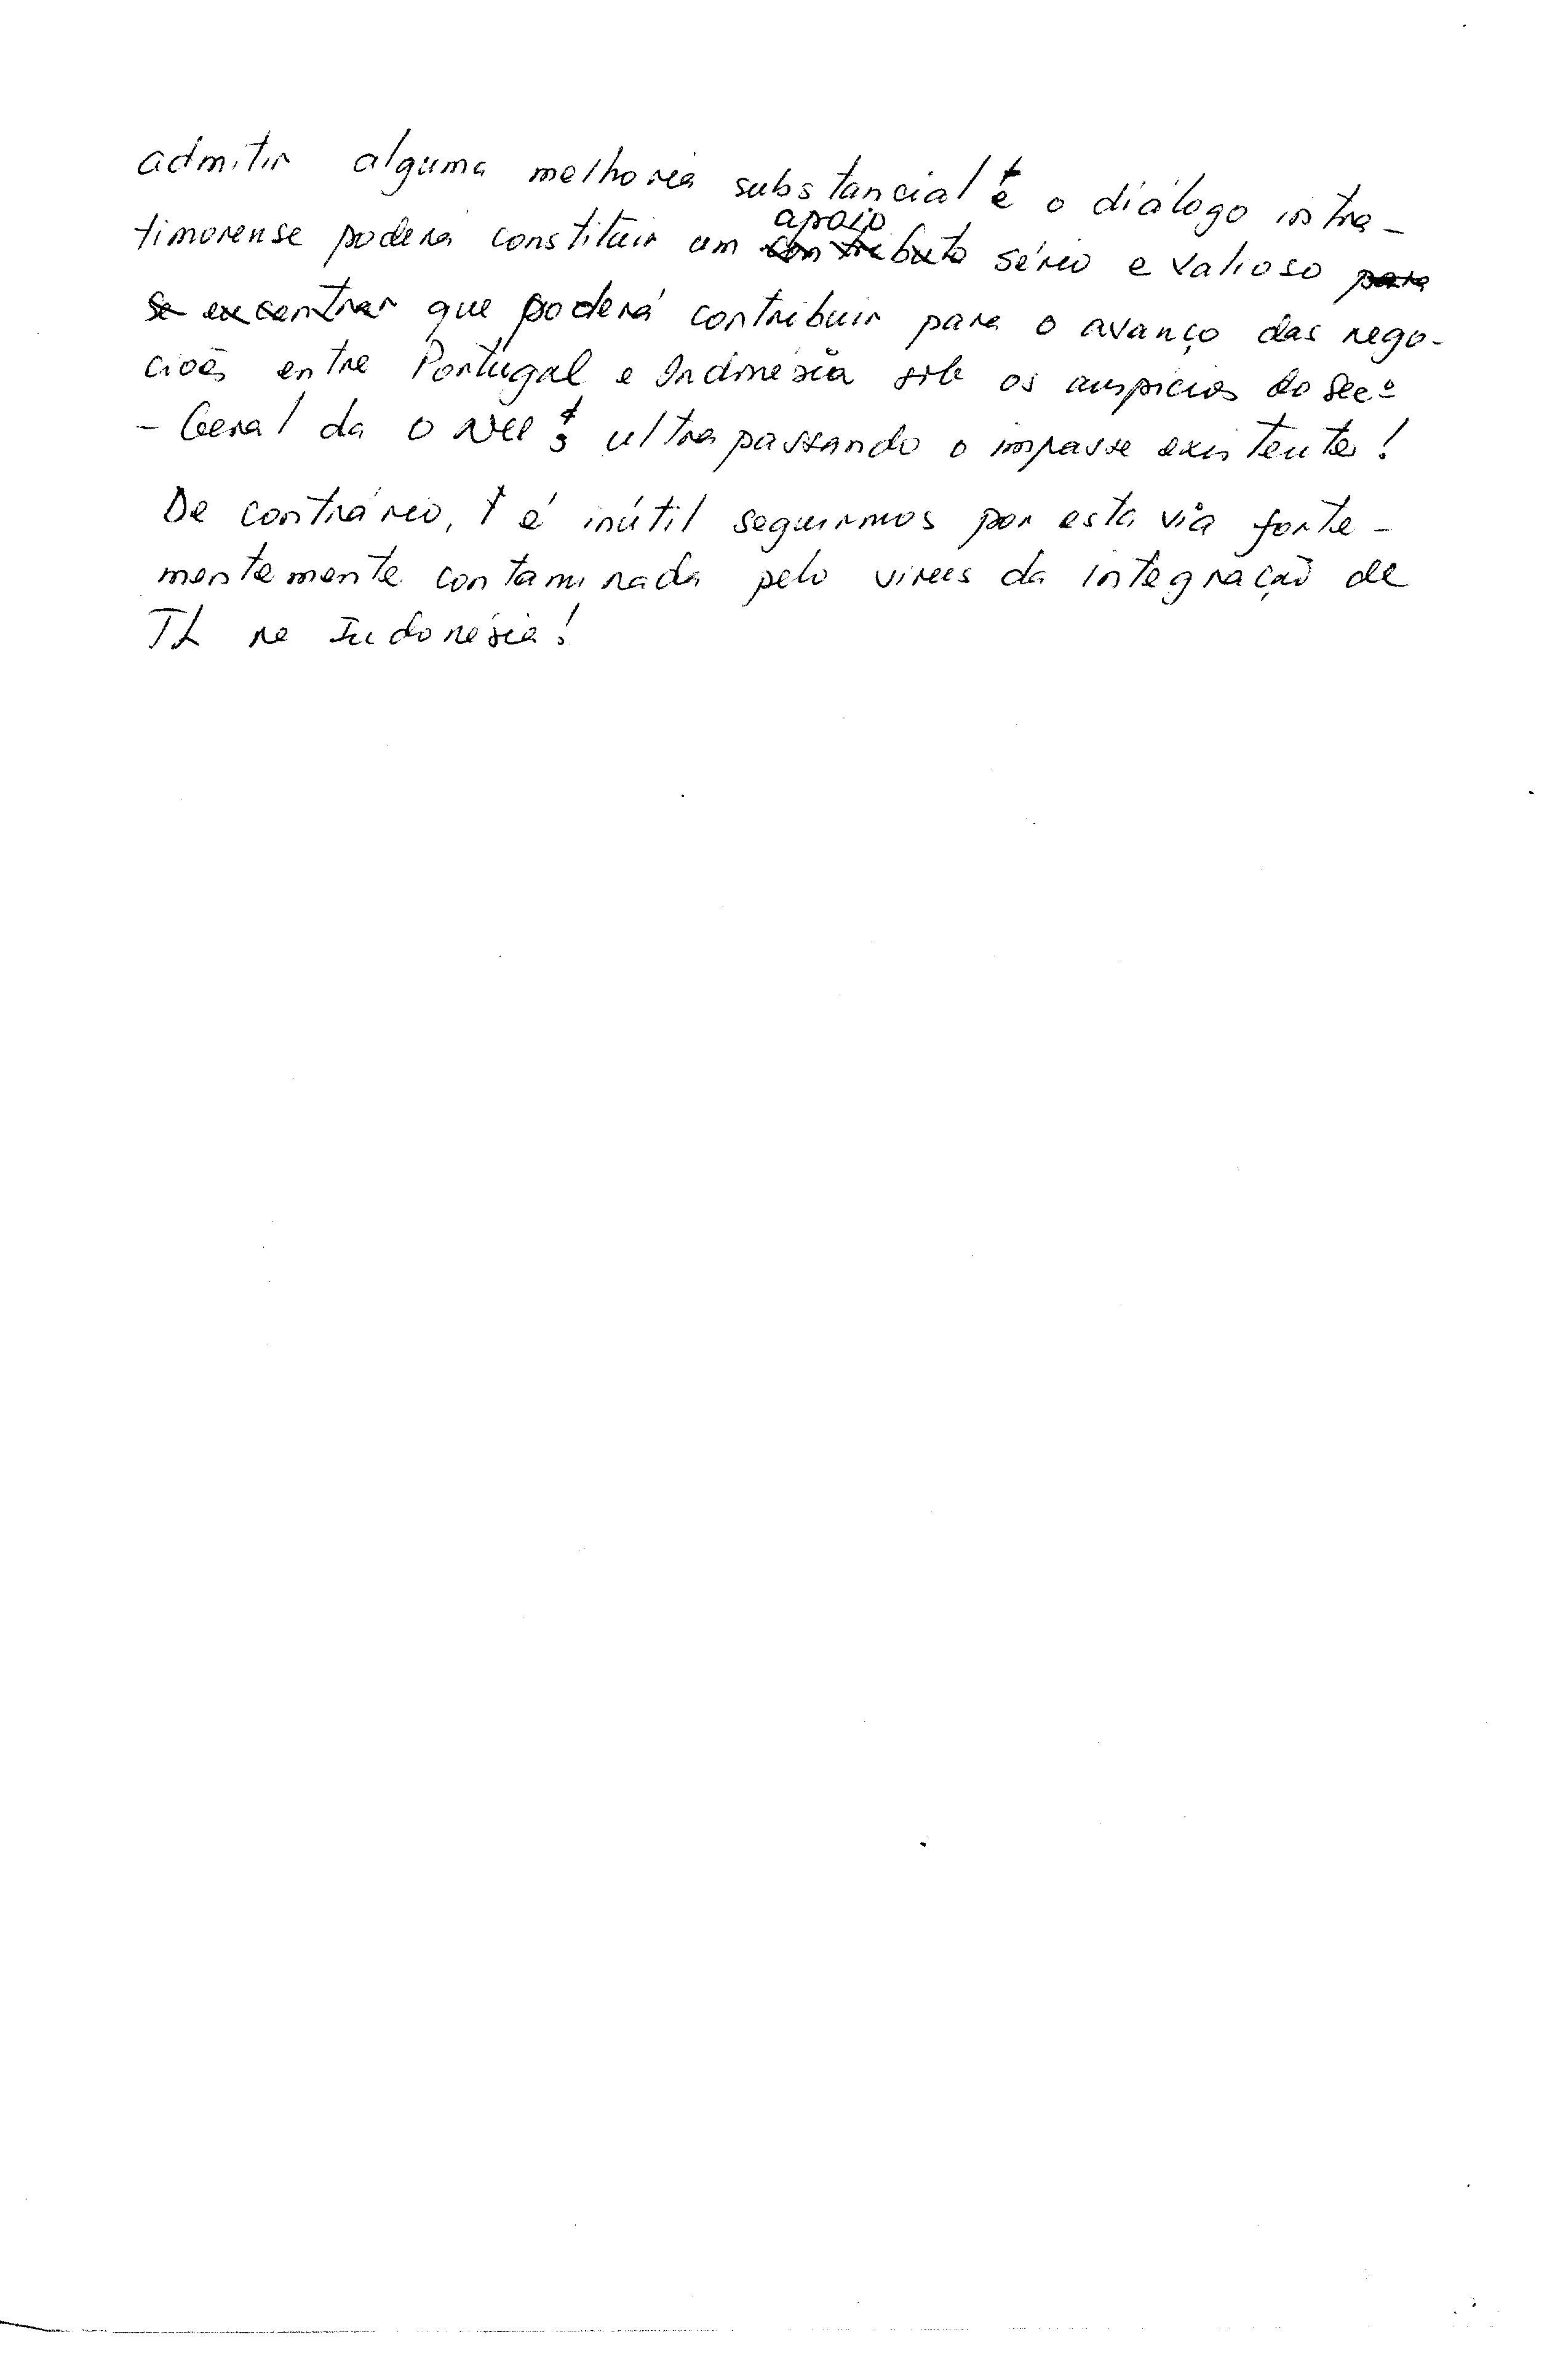 admitir alguma melhoria substancial e o diálogo intra-
apoio
timorense poderá constituir um contributo sério e valioso para
se encontrar que poderá contribuir para o avanço das nego-
cioẽs entre Portugal e Indonésia sob os auspícios do Sec.º
- Geral da ONU ultrapassando o impasse existente!
De contrário, é inútil seguirmos por esta via forte-
mentemente contaminada pelo virus da integração de
TL na Indonésia!